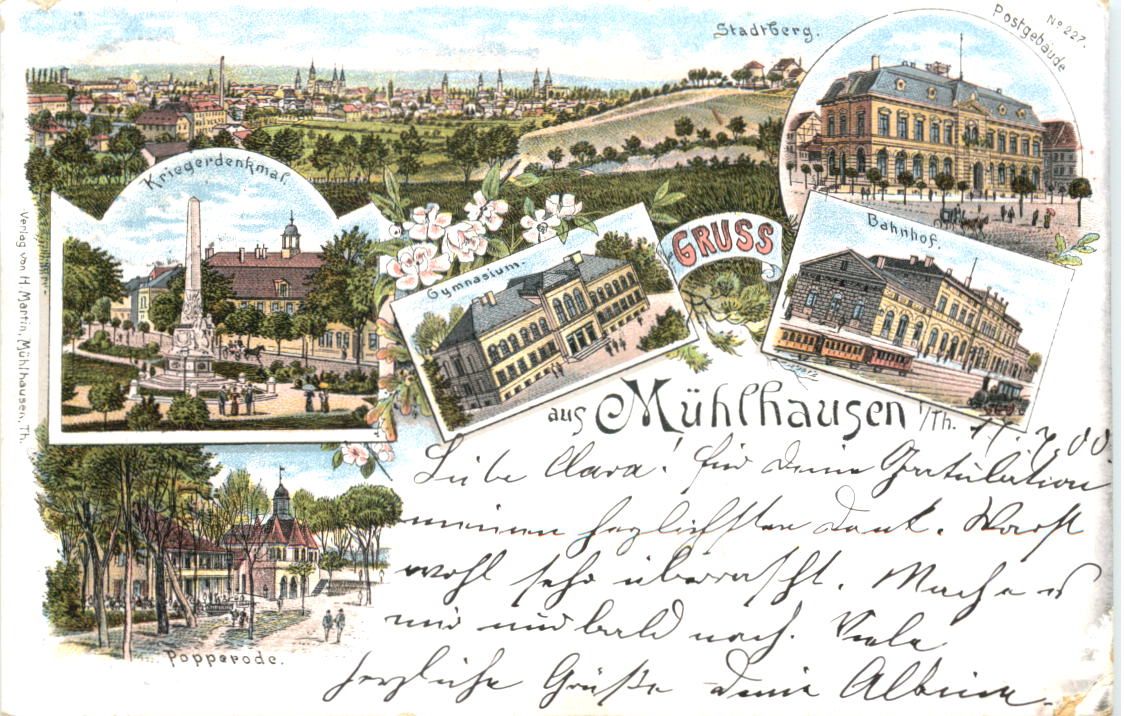 Stadtberg.
Postgebäude
No 227.
Kriegerdenkmal.
Gymnasium.
GRUSS
Bahnhof.
aus Mühlhausen i/Th.
Verlag von H. Martin, Mühlhausen, Th.
Popperode.
11. 7. 00.
Liebe Clara! für deine Gratulation
meinen herzlichsten Dank. Warst
wohl sehr überrascht. Mach es
mir nur bald nach. Viele
herzliche Grüße deine Albine.